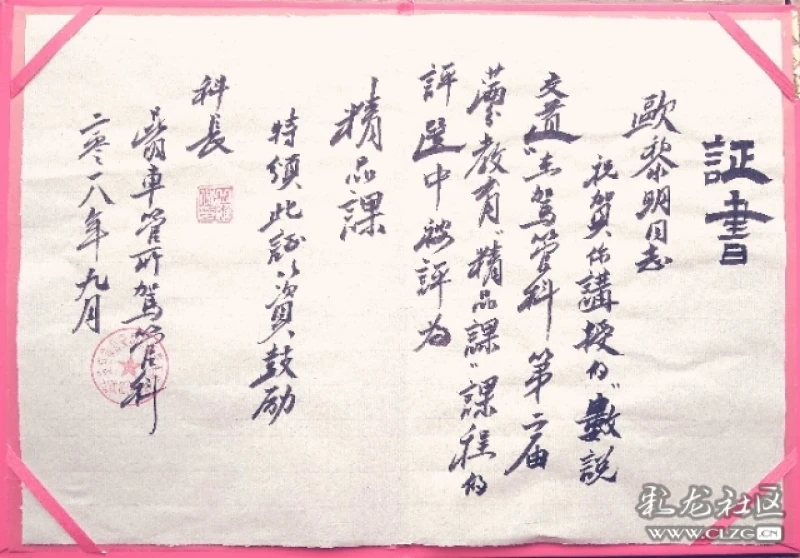 証書
歐黎明同志
祝賀你講授的"數説
交道"在駕管科第二届
蒙教育"精品課"課程的
評選中被評為
精品課
特頒此証以資鼓励
科長
車管所駕管科
二零一八年九月
彩龙社区
WWW.CLZG.CN